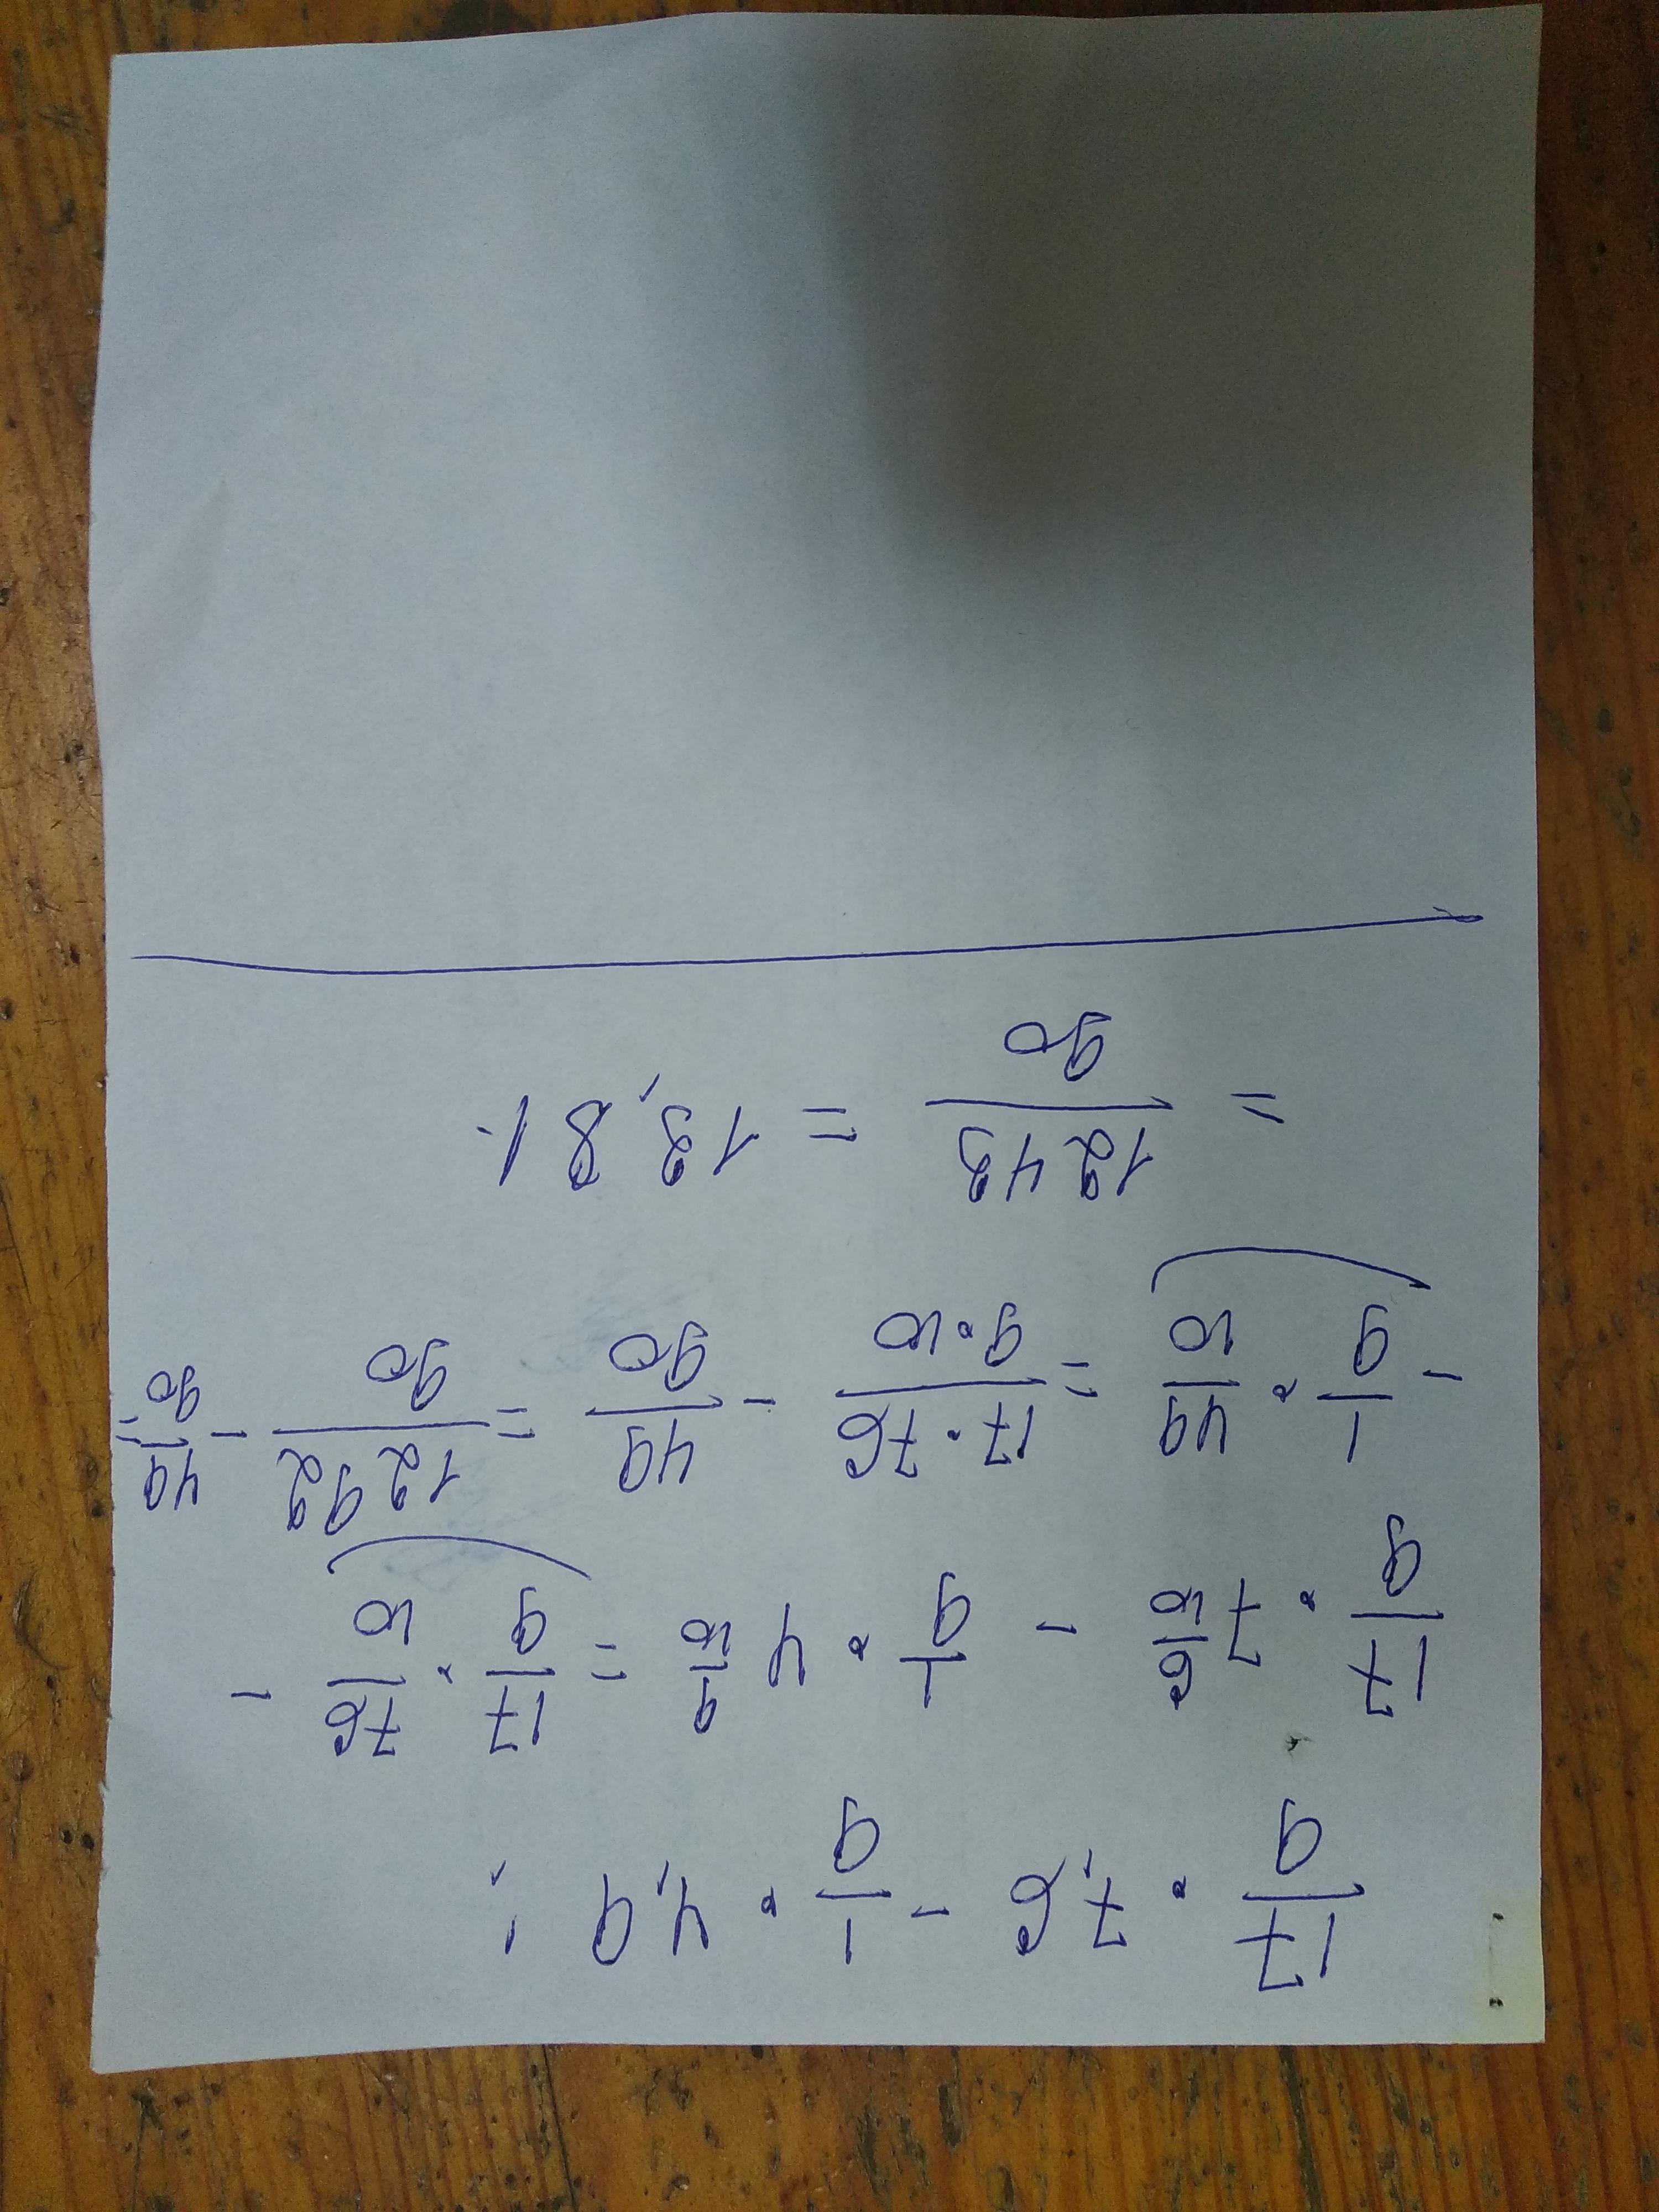 17/9 · 7,6 - 1/9 · 4,9 ;
17/9 · 7 6/10 - 1/9 · 4 9/10 = 17/9 · 76/10 -
- 1/9 · 49/10 = 17·76/9·10 - 49/90 = 1292/90 - 49/90 =
= 1243/90 = 13,81.